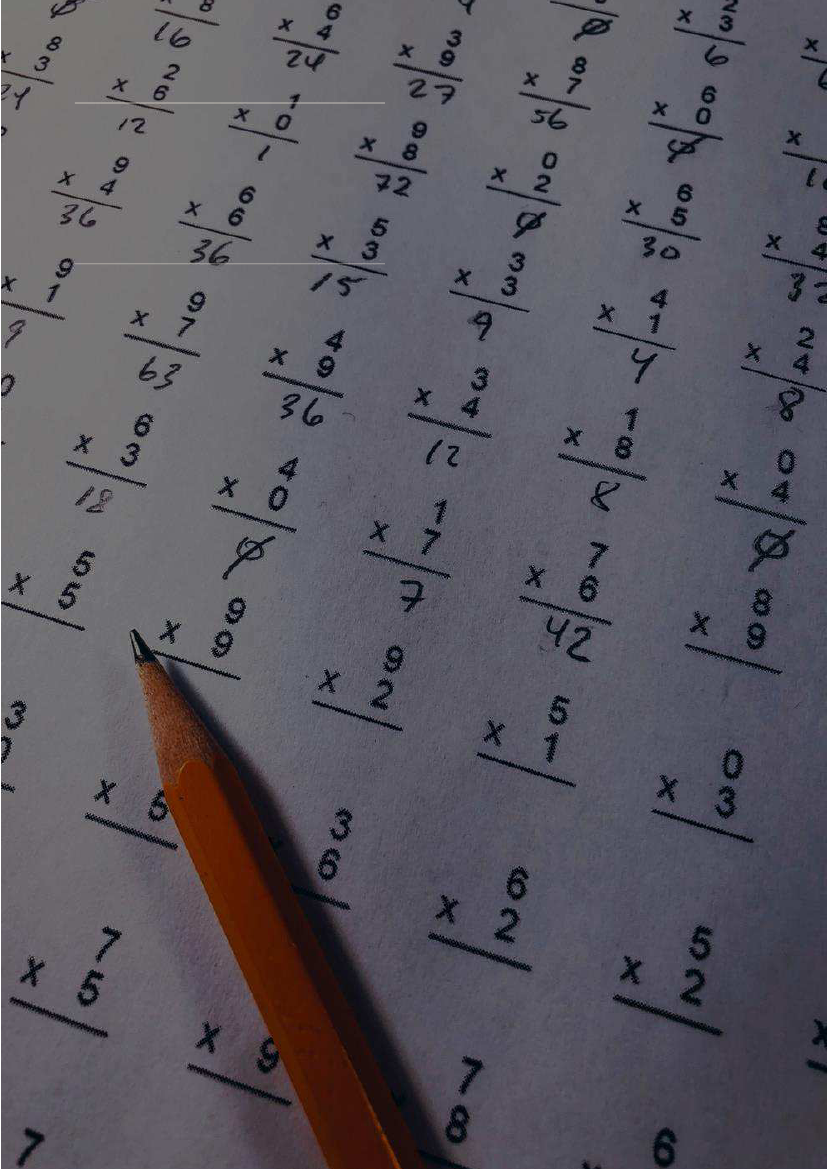 Ø 3
× 3
6
8 6 3 8 6
× 4 × 9 × 7 × 0
16 24 27 56 Ø
8 2 1 9 0 6 8
× 3 × 6 × 0 × 8 × 2 × 5 × 4
24 12 1 72 Ø 30 32
9 6 5 3 4 2
× 4 × 6 × 3 × 3 × 1 × 4
36 36 15 9 4 8
9 9 4 3 1 0
× 1 × 7 × 9 × 4 × 8 × 4
9 63 36 12 8 Ø
6 4 1 7 8
× 3 × 0 × 7 × 6 × 9
18 Ø 7 42
5 9 9 5 0
× 5 × 9 × 2 × 1 × 3
3 3 6 5
× 5 6 × 2 × 2
7 7 6
× 5 × 9 8
7